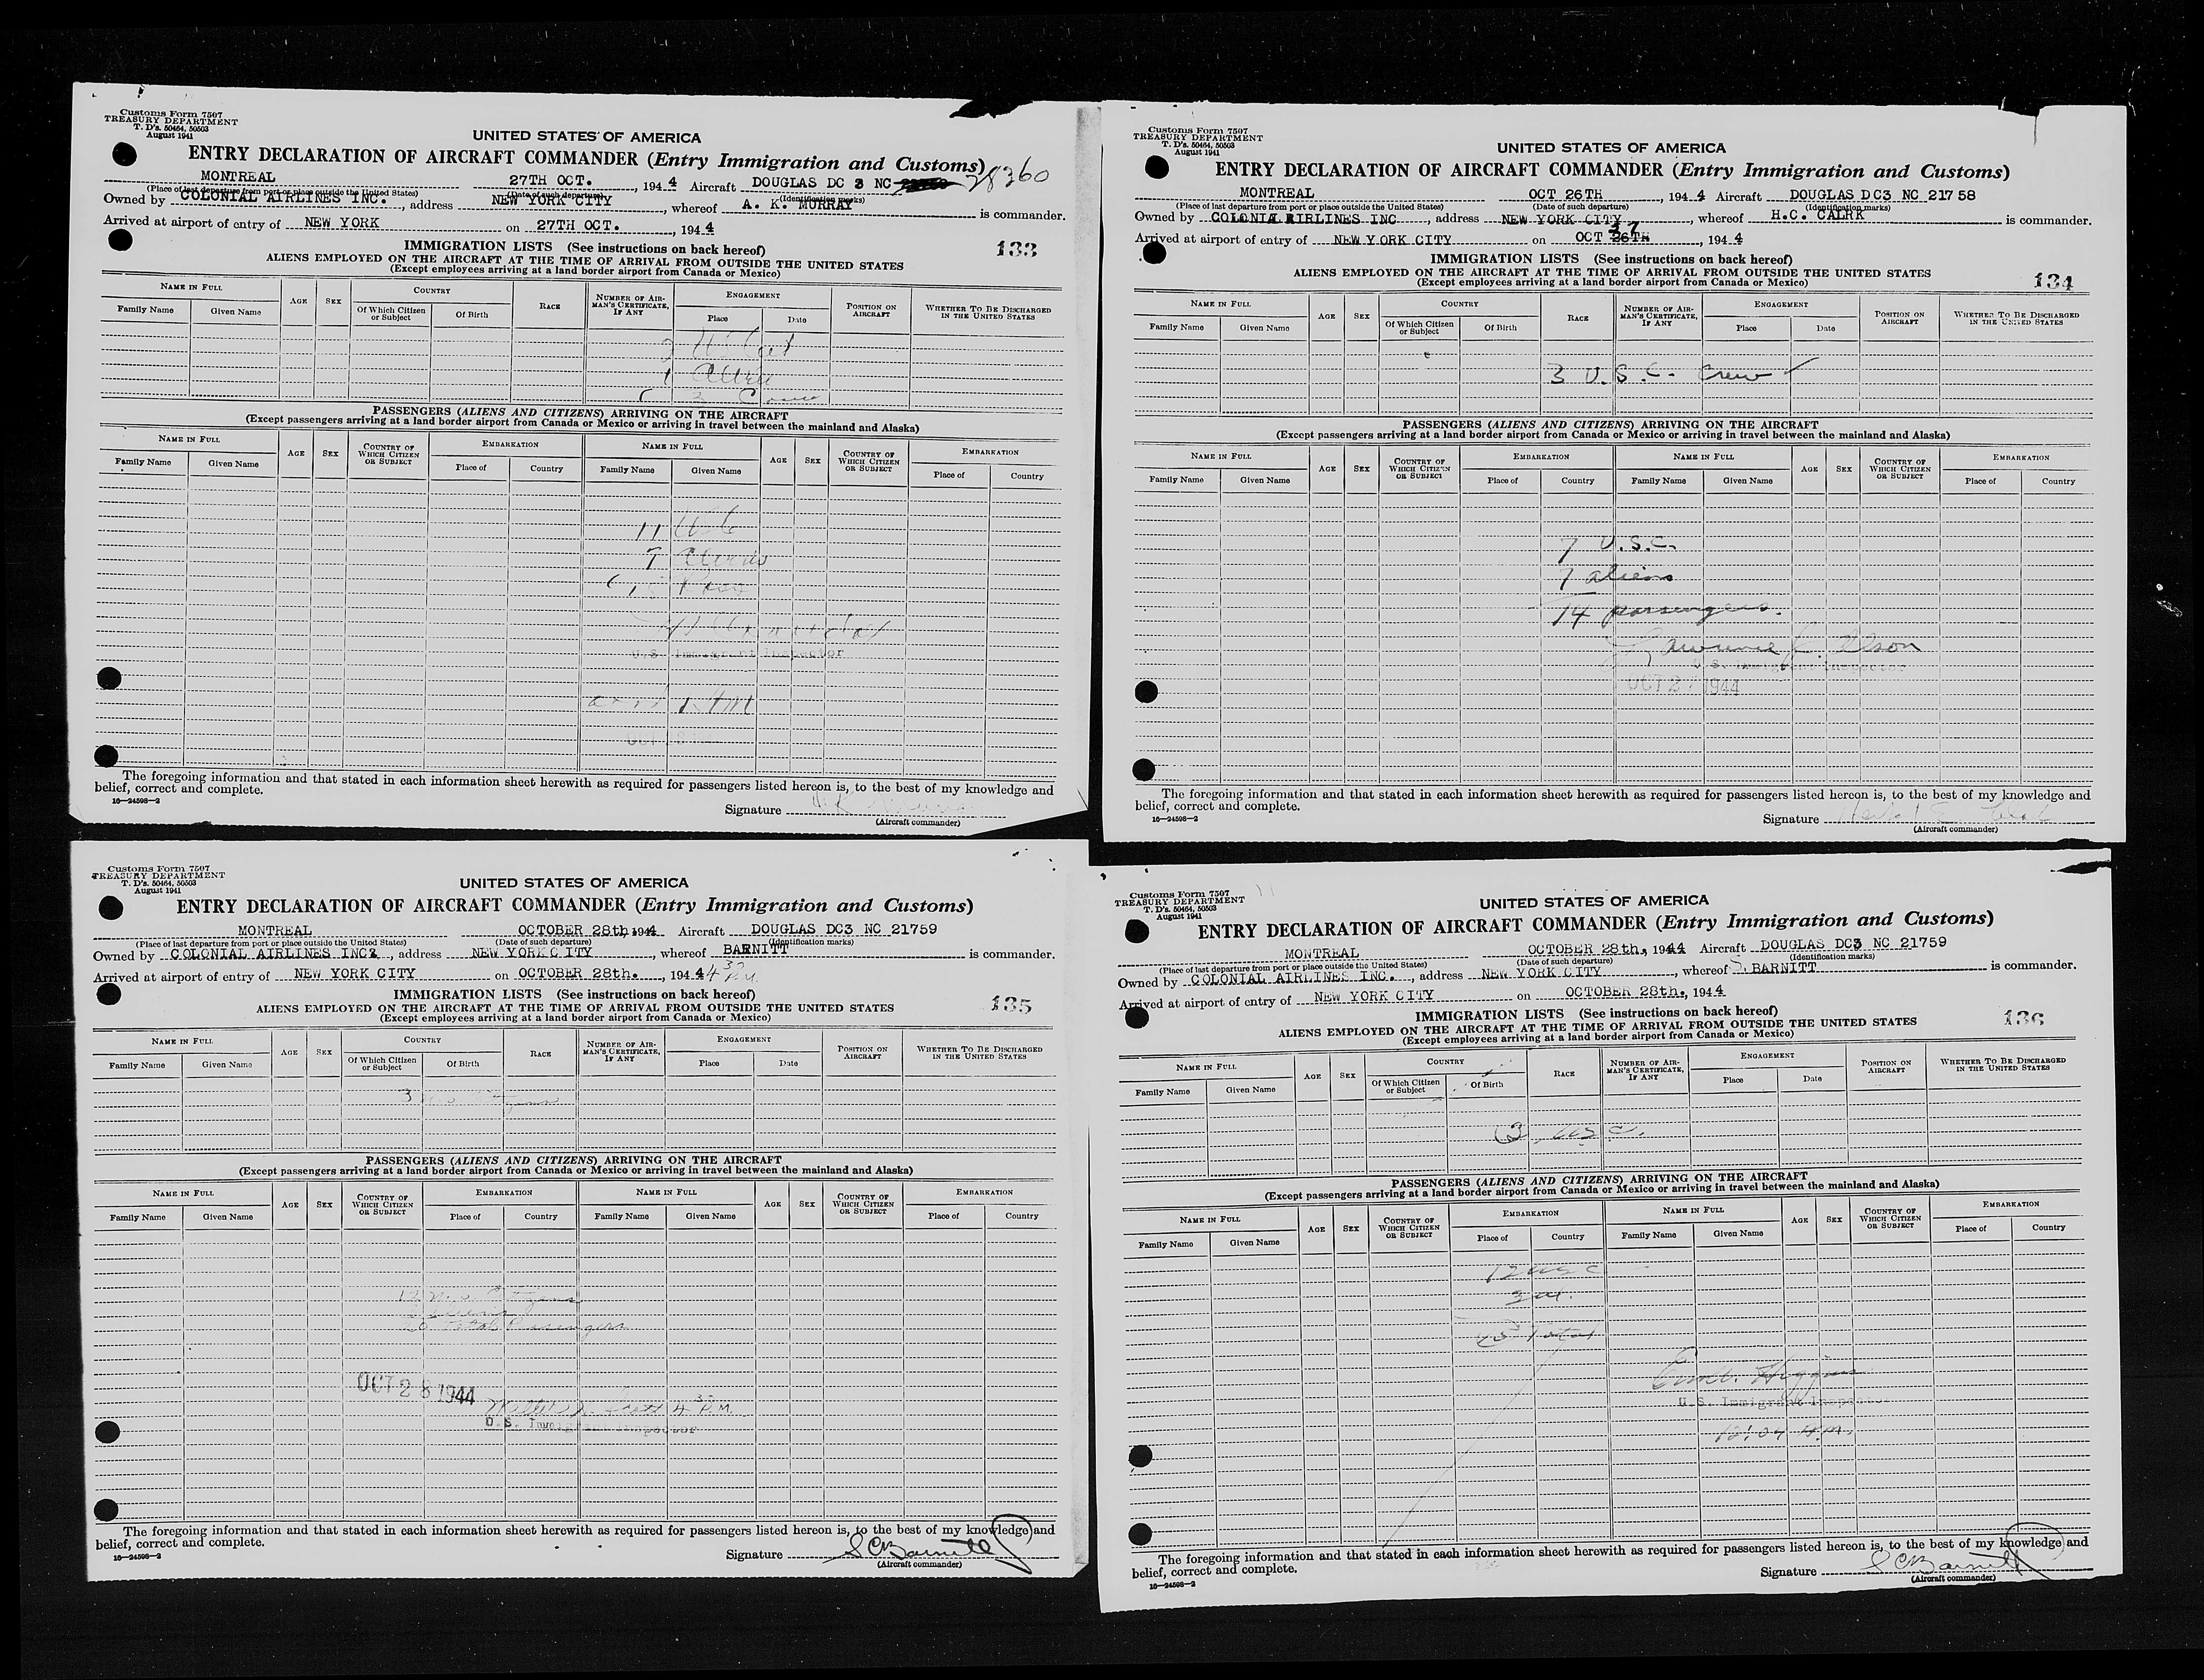 Customs Form 7507
TREASURY DEPARTMENT
T. D's. 50464, 50503
August 1941
UNITED STATES OF AMERICA
ENTRY DECLARATION OF AIRCRAFT COMMANDER (Entry Immigration and Customs)
MONTREAL 27TH OCT., 1944 Aircraft DOUGLAS DC 3 NC 28360
(Place of last departure from port or place outside the United States) (Date of such departure) (Identification marks)
Owned by COLONIAL AIRLINES INC., address NEW YORK CITY, whereof A. K. MURRAY is commander.
Arrived at airport of entry of NEW YORK on 27TH OCT., 1944
IMMIGRATION LISTS (See instructions on back hereof) 133
ALIENS EMPLOYED ON THE AIRCRAFT AT THE TIME OF ARRIVAL FROM OUTSIDE THE UNITED STATES
(Except employees arriving at a land border airport from Canada or Mexico)
NAME IN FULL AGE SEX COUNTRY RACE NUMBER OF AIRMAN'S CERTIFICATE, IF ANY ENGAGEMENT POSITION ON AIRCRAFT WHETHER TO BE DISCHARGED IN THE UNITED STATES
Family Name Given Name Of Which Citizen or Subject Of Birth Place Date
1 Alien
PASSENGERS (ALIENS AND CITIZENS) ARRIVING ON THE AIRCRAFT
(Except passengers arriving at a land border airport from Canada or Mexico or arriving in travel between the mainland and Alaska)
NAME IN FULL AGE SEX COUNTRY OF WHICH CITIZEN OR SUBJECT EMBARKATION NAME IN FULL AGE SEX COUNTRY OF WHICH CITIZEN OR SUBJECT EMBARKATION
Family Name Given Name Place of Country Family Name Given Name Place of Country
11
7 Aliens
U.S. Immigrant Inspector
The foregoing information and that stated in each information sheet herewith as required for passengers listed hereon is, to the best of my knowledge and
belief, correct and complete.
16—24598—2
Signature
(Aircraft commander)
Customs Form 7507
TREASURY DEPARTMENT
T. D's. 50464, 50503
August 1941
UNITED STATES OF AMERICA
ENTRY DECLARATION OF AIRCRAFT COMMANDER (Entry Immigration and Customs)
MONTREAL OCT 26TH, 1944 Aircraft DOUGLAS DC3 NC 21758
(Place of last departure from port or place outside the United States) (Date of such departure) (Identification marks)
Owned by COLONIAL AIRLINES INC, address NEW YORK CITY, whereof H.C. CALRK is commander.
Arrived at airport of entry of NEW YORK CITY on OCT 26TH, 1944
IMMIGRATION LISTS (See instructions on back hereof)
ALIENS EMPLOYED ON THE AIRCRAFT AT THE TIME OF ARRIVAL FROM OUTSIDE THE UNITED STATES
(Except employees arriving at a land border airport from Canada or Mexico) 134
NAME IN FULL AGE SEX COUNTRY RACE NUMBER OF AIRMAN'S CERTIFICATE, IF ANY ENGAGEMENT POSITION ON AIRCRAFT WHETHER TO BE DISCHARGED IN THE UNITED STATES
Family Name Given Name Of Which Citizen or Subject Of Birth Place Date
3 U.S.C. Crew
PASSENGERS (ALIENS AND CITIZENS) ARRIVING ON THE AIRCRAFT
(Except passengers arriving at a land border airport from Canada or Mexico or arriving in travel between the mainland and Alaska)
NAME IN FULL AGE SEX COUNTRY OF WHICH CITIZEN OR SUBJECT EMBARKATION NAME IN FULL AGE SEX COUNTRY OF WHICH CITIZEN OR SUBJECT EMBARKATION
Family Name Given Name Place of Country Family Name Given Name Place of Country
7 U.S.C.
7 aliens
14 passengers.
U.S. Immigrant Inspector
OCT 27 1944
The foregoing information and that stated in each information sheet herewith as required for passengers listed hereon is, to the best of my knowledge and
belief, correct and complete.
16—24598—2
Signature
(Aircraft commander)
Customs Form 7507
TREASURY DEPARTMENT
T. D's. 50464, 50503
August 1941
UNITED STATES OF AMERICA
ENTRY DECLARATION OF AIRCRAFT COMMANDER (Entry Immigration and Customs)
MONTREAL OCTOBER 28th, 1944 Aircraft DOUGLAS DC3 NC 21759
(Place of last departure from port or place outside the United States) (Date of such departure) (Identification marks)
Owned by COLONIAL AIRLINES INC., address NEW YORK CITY, whereof BARNITT is commander.
Arrived at airport of entry of NEW YORK CITY on OCTOBER 28th., 1944
IMMIGRATION LISTS (See instructions on back hereof) 135
ALIENS EMPLOYED ON THE AIRCRAFT AT THE TIME OF ARRIVAL FROM OUTSIDE THE UNITED STATES
(Except employees arriving at a land border airport from Canada or Mexico)
NAME IN FULL AGE SEX COUNTRY RACE NUMBER OF AIRMAN'S CERTIFICATE, IF ANY ENGAGEMENT POSITION ON AIRCRAFT WHETHER TO BE DISCHARGED IN THE UNITED STATES
Family Name Given Name Of Which Citizen or Subject Of Birth Place Date
3
PASSENGERS (ALIENS AND CITIZENS) ARRIVING ON THE AIRCRAFT
(Except passengers arriving at a land border airport from Canada or Mexico or arriving in travel between the mainland and Alaska)
NAME IN FULL AGE SEX COUNTRY OF WHICH CITIZEN OR SUBJECT EMBARKATION NAME IN FULL AGE SEX COUNTRY OF WHICH CITIZEN OR SUBJECT EMBARKATION
Family Name Given Name Place of Country Family Name Given Name Place of Country
Citizens
Aliens
20 Total Passengers
OCT 28 1944
U.S. Immigrant Inspector
The foregoing information and that stated in each information sheet herewith as required for passengers listed hereon is, to the best of my knowledge and
belief, correct and complete.
16—24598—2
Signature S C Barnitt
(Aircraft commander)
Customs Form 7507
TREASURY DEPARTMENT
T. D's. 50464, 50503
August 1941
UNITED STATES OF AMERICA
ENTRY DECLARATION OF AIRCRAFT COMMANDER (Entry Immigration and Customs)
MONTREAL OCTOBER 28th, 1944 Aircraft DOUGLAS DC3 NC 21759
(Place of last departure from port or place outside the United States) (Date of such departure) (Identification marks)
Owned by COLONIAL AIRLINES INC., address NEW YORK CITY, whereof S. BARNITT is commander.
Arrived at airport of entry of NEW YORK CITY on OCTOBER 28th., 1944
IMMIGRATION LISTS (See instructions on back hereof) 136
ALIENS EMPLOYED ON THE AIRCRAFT AT THE TIME OF ARRIVAL FROM OUTSIDE THE UNITED STATES
(Except employees arriving at a land border airport from Canada or Mexico)
NAME IN FULL AGE SEX COUNTRY RACE NUMBER OF AIRMAN'S CERTIFICATE, IF ANY ENGAGEMENT POSITION ON AIRCRAFT WHETHER TO BE DISCHARGED IN THE UNITED STATES
Family Name Given Name Of Which Citizen or Subject Of Birth Place Date
3 USC.
PASSENGERS (ALIENS AND CITIZENS) ARRIVING ON THE AIRCRAFT
(Except passengers arriving at a land border airport from Canada or Mexico or arriving in travel between the mainland and Alaska)
NAME IN FULL AGE SEX COUNTRY OF WHICH CITIZEN OR SUBJECT EMBARKATION NAME IN FULL AGE SEX COUNTRY OF WHICH CITIZEN OR SUBJECT EMBARKATION
Family Name Given Name Place of Country Family Name Given Name Place of Country
12 USC
3 al.
Total
Higgins
U.S. Immigrant Inspector
The foregoing information and that stated in each information sheet herewith as required for passengers listed hereon is, to the best of my knowledge and
belief, correct and complete.
16—24598—2
Signature S C Barnitt
(Aircraft commander)